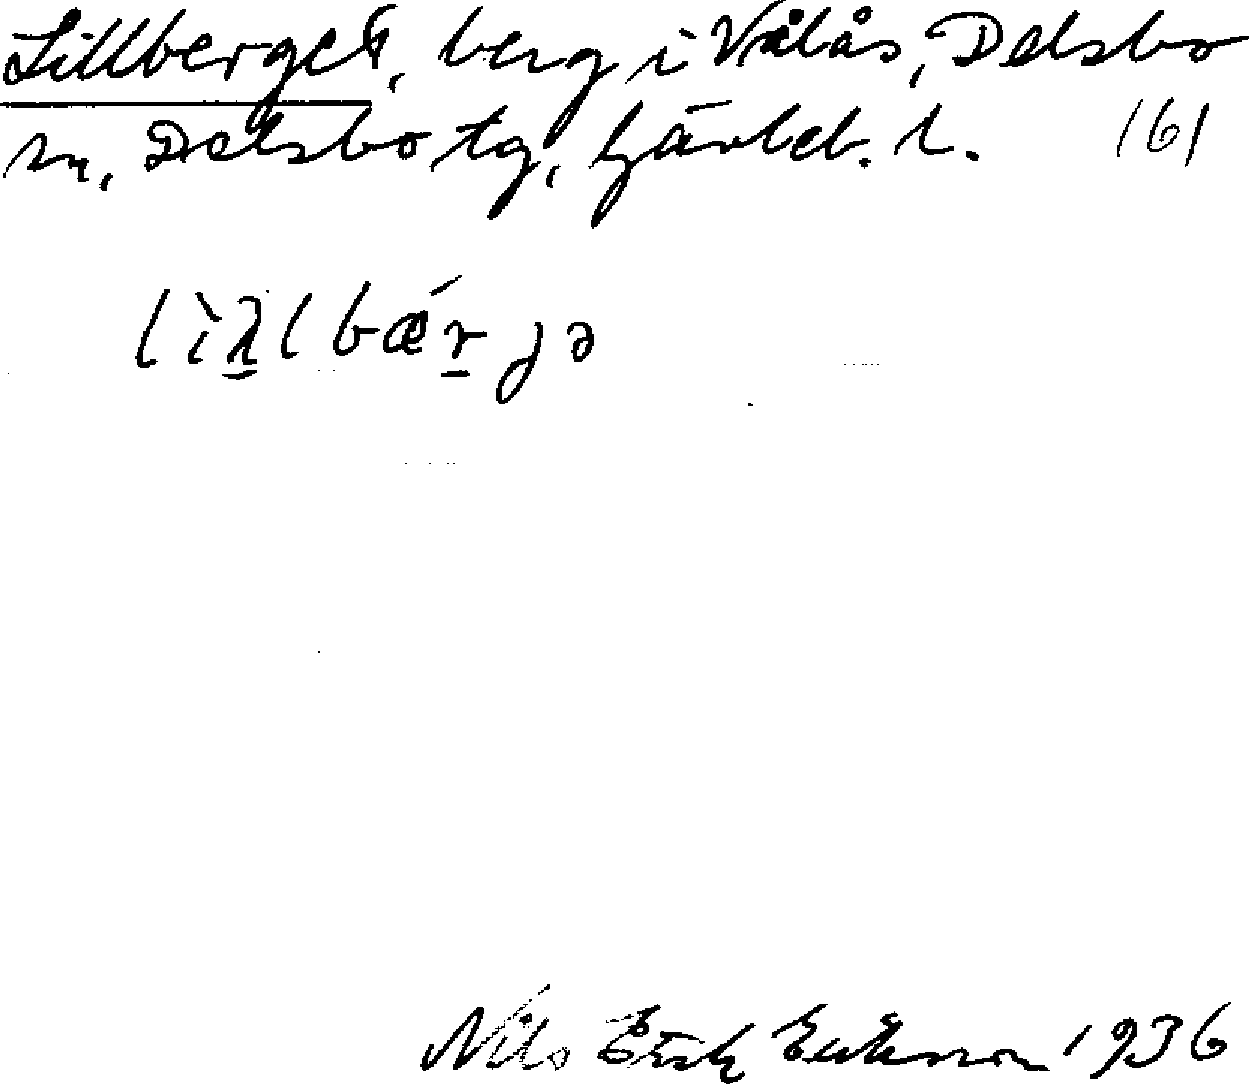 Lillberget, berg i Vålås, Delsbo
sn, Delsbo tg, Gävleb. l. 161
lìλ̲lbǽr̲jə
Nils Erik Eriksson 1936